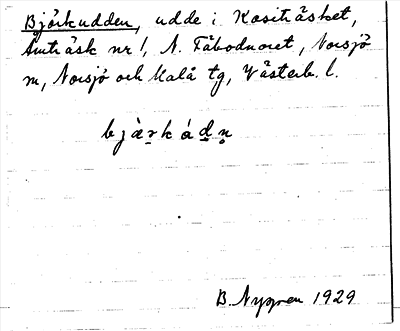 Björkudden, udde i Kositräsket,
Åmträsk nr 1, N. Fäbodnoret, Norsjö
m, Norsjö och Malå tg, Västerb. l.
bjä̀rkádn̥
B. Nygren 1929